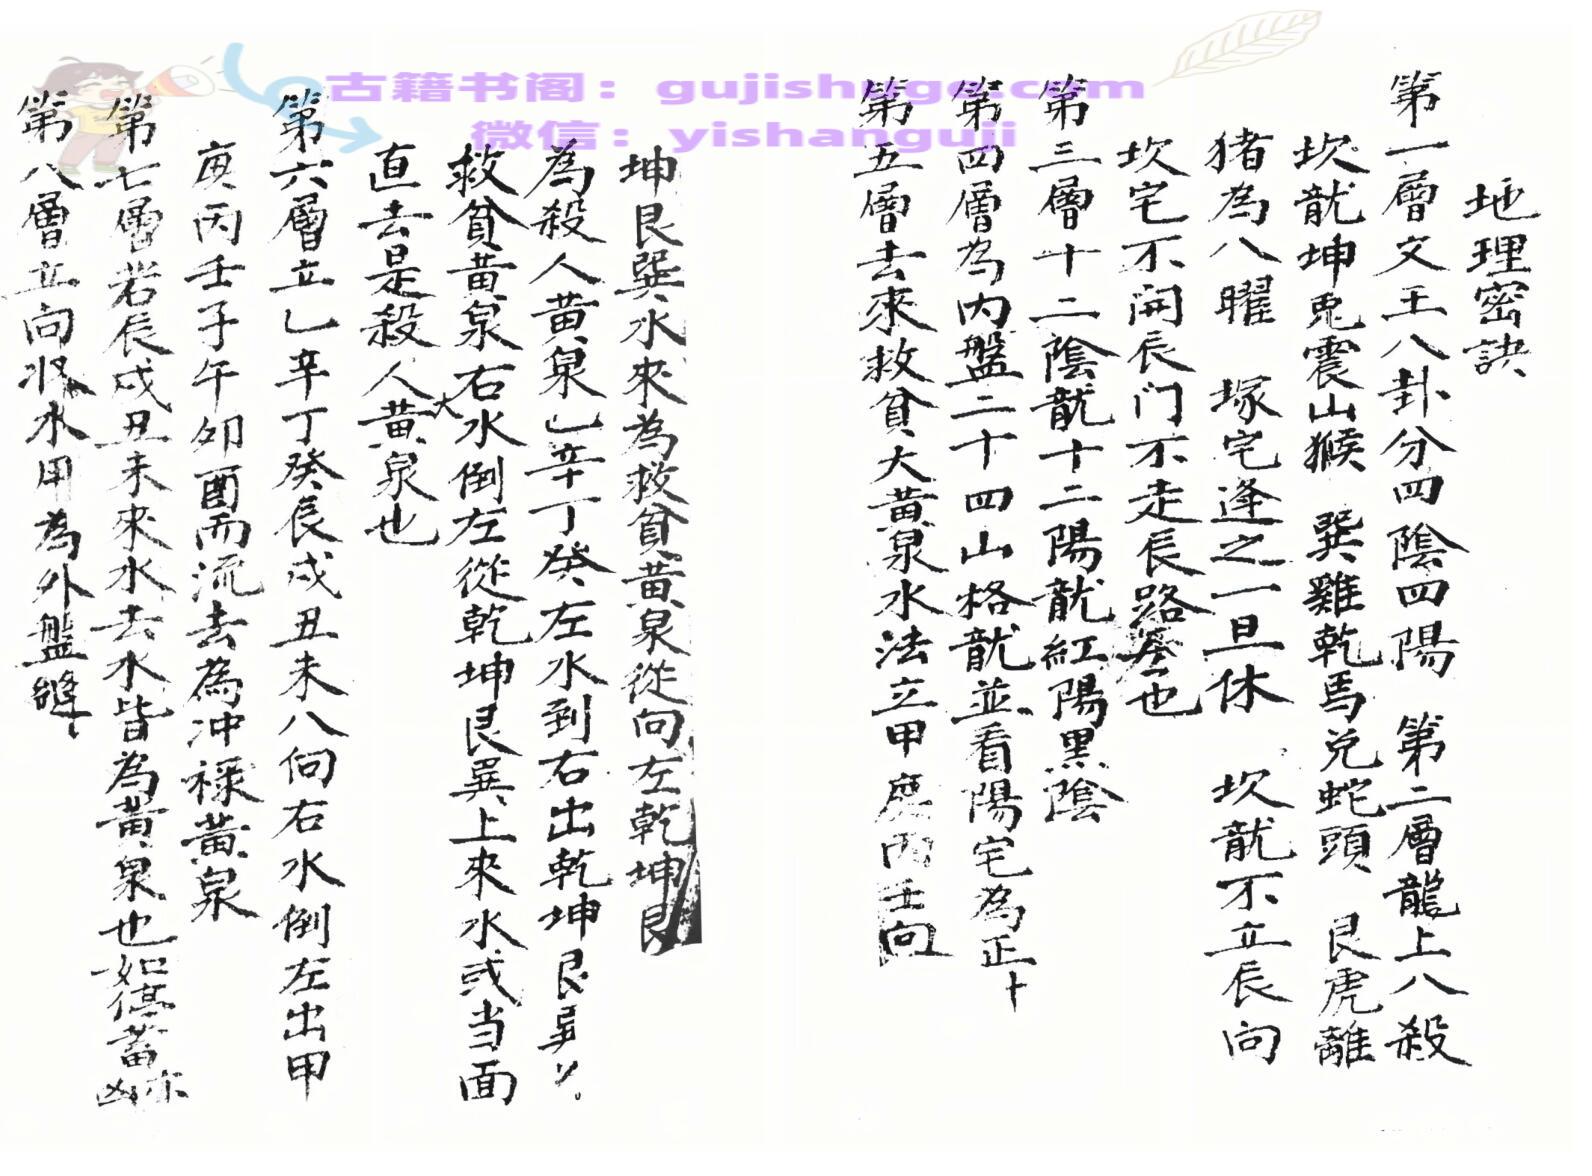 古籍书阁：gujishuge.com
微信：yishanguji
地理密訣
第一層文王八卦分四陰四陽　第二層龍上八殺
坎龍坤兎震山猴　巽雞乾馬兌蛇頭　艮虎離
猪為八曜　塚宅逢之一旦休　坎龍不立辰向
坎宅不開辰门不走辰路也
第三層十二陰龍十二陽龍紅陽黑陰
第四層為内盤二十四山格龍並看陽宅為正十
第五層去來救貧大黄泉水法立甲庚丙壬向
坤艮巽水來為救貧黄泉從向左乾坤艮
為殺人黄泉乙辛丁癸左水到右出乾坤艮巽
救貧黄泉右水倒左從乾坤艮巽上來水或当面
直去是殺人大黄泉也
第六層立乙辛丁癸辰戌丑未八向右水倒左出甲
庚丙壬子午卯酉而流去為冲禄黄泉
第七層若辰戌丑未來水去水皆為黄泉也如停蓄亦凶
第八層立向收水用為外盤縫